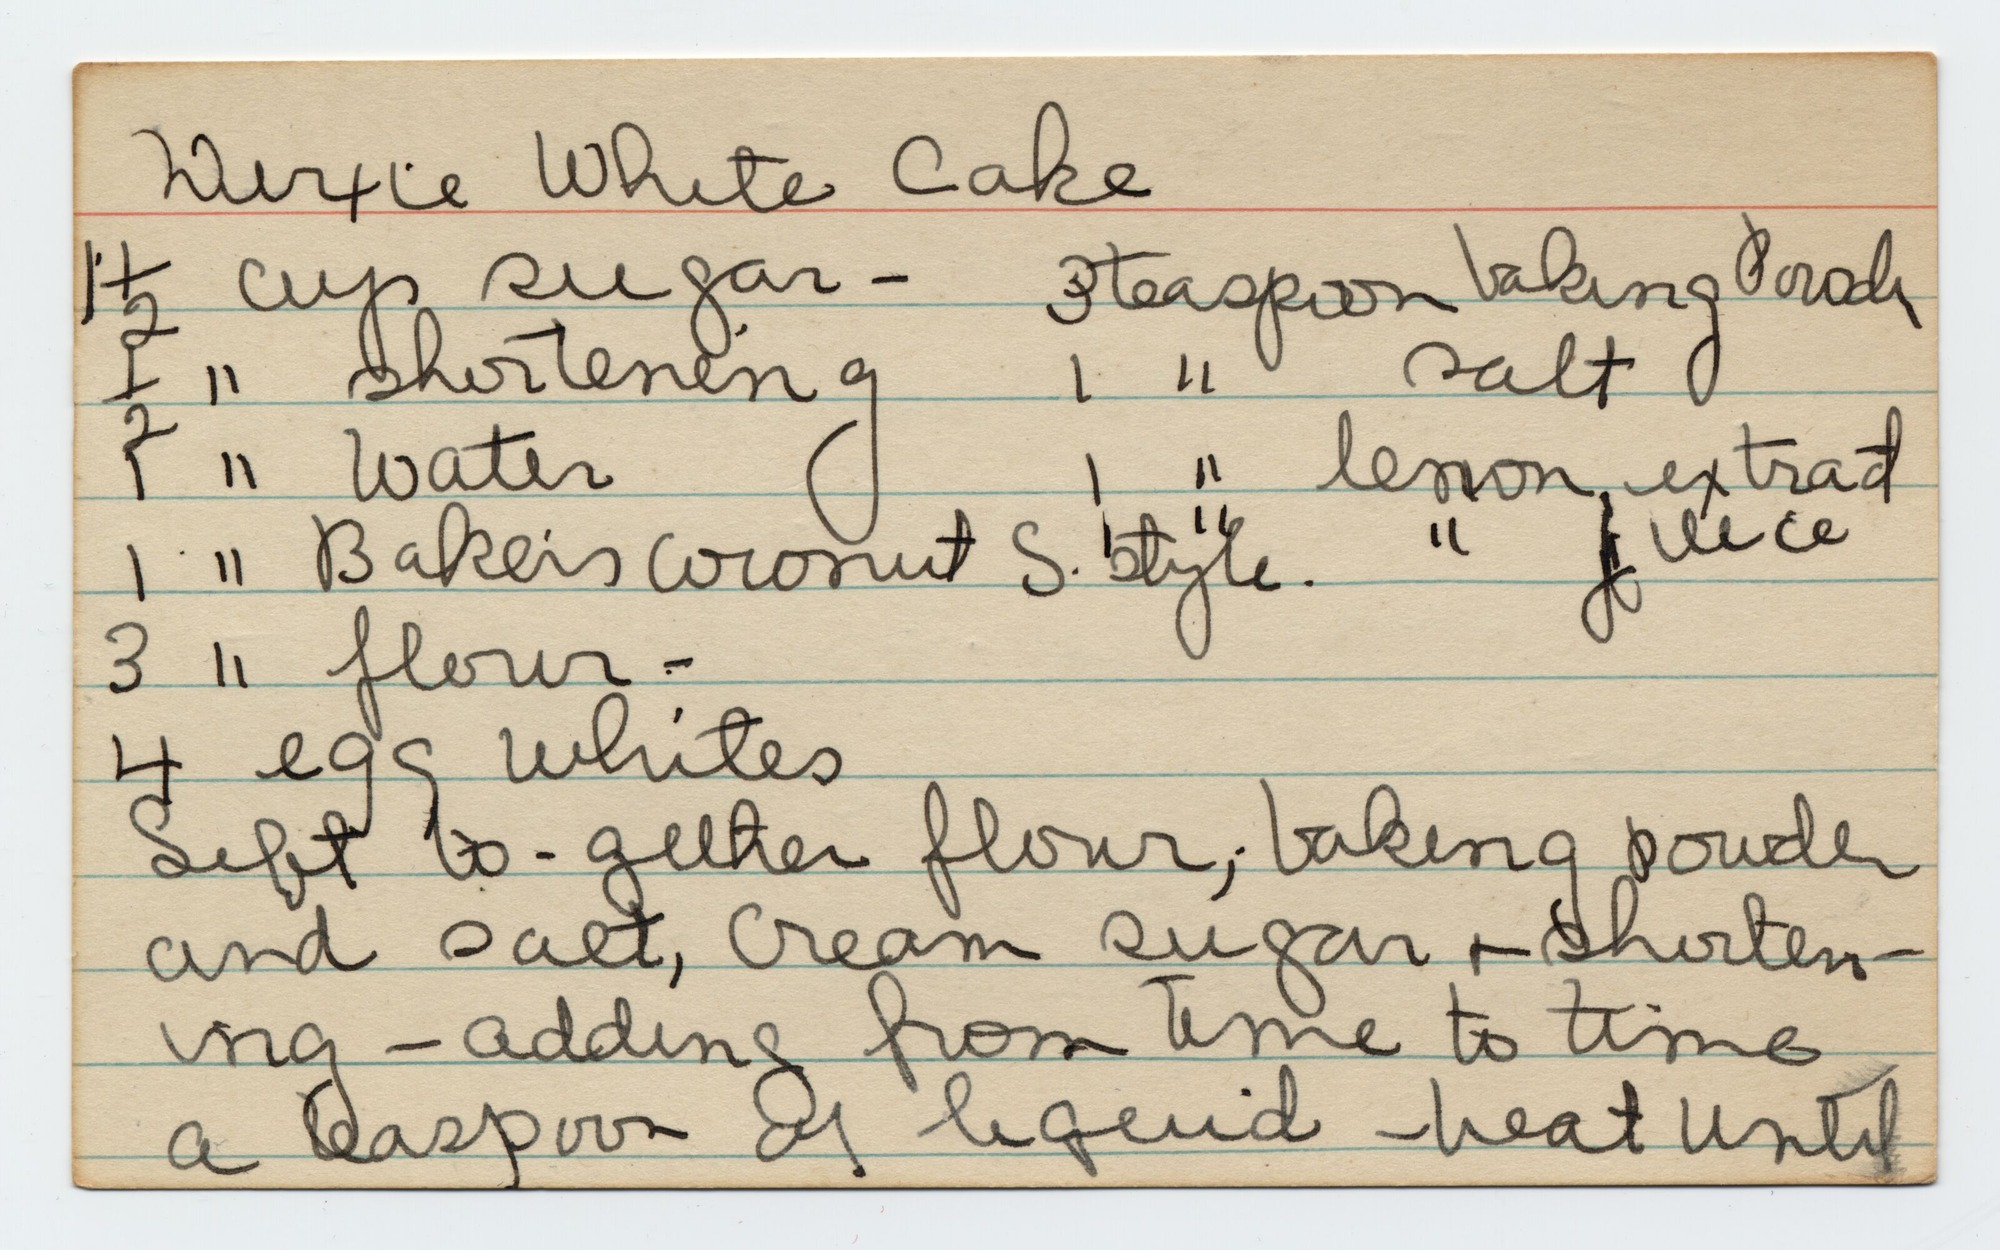 Dixie White Cake
1 1/2 cup sugar - 3 teaspoon baking Powd
1/2 " shortening 1 " salt
1 " Water 1 " lemon extract
1 " Baker's Coconut S. style. 1 " " juice
3 " flour -
4 egg whites
Sift to-gether flour, baking powder
and salt, Cream sugar + shorten-
ing - adding from time to time
a teaspoon of liquid - beat until